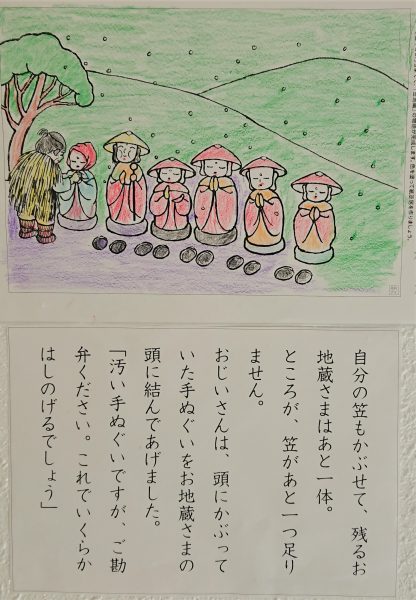 自分の笠もかぶせて、残るお
地蔵さまはあと一体。
ところが、笠があと一つ足り
ません。
おじいさんは、頭にかぶって
いた手ぬぐいをお地蔵さまの
頭に結んであげました。
「汚い手ぬぐいですが、ご勘
弁ください。これでいくらか
はしのげるでしょう」